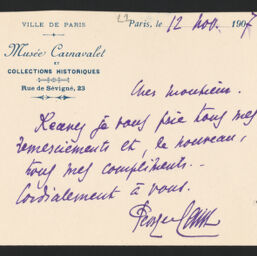 VILLE DE PARIS
Musée Carnavalet
ET
COLLECTIONS HISTORIQUES
Rue de Sévigné, 23
Paris, le 12 nov. 1907
Cher monsieur.
je vous prie tous mes
remerciements et, de nouveau,
tous mes compliments. -
Cordialement à vous.